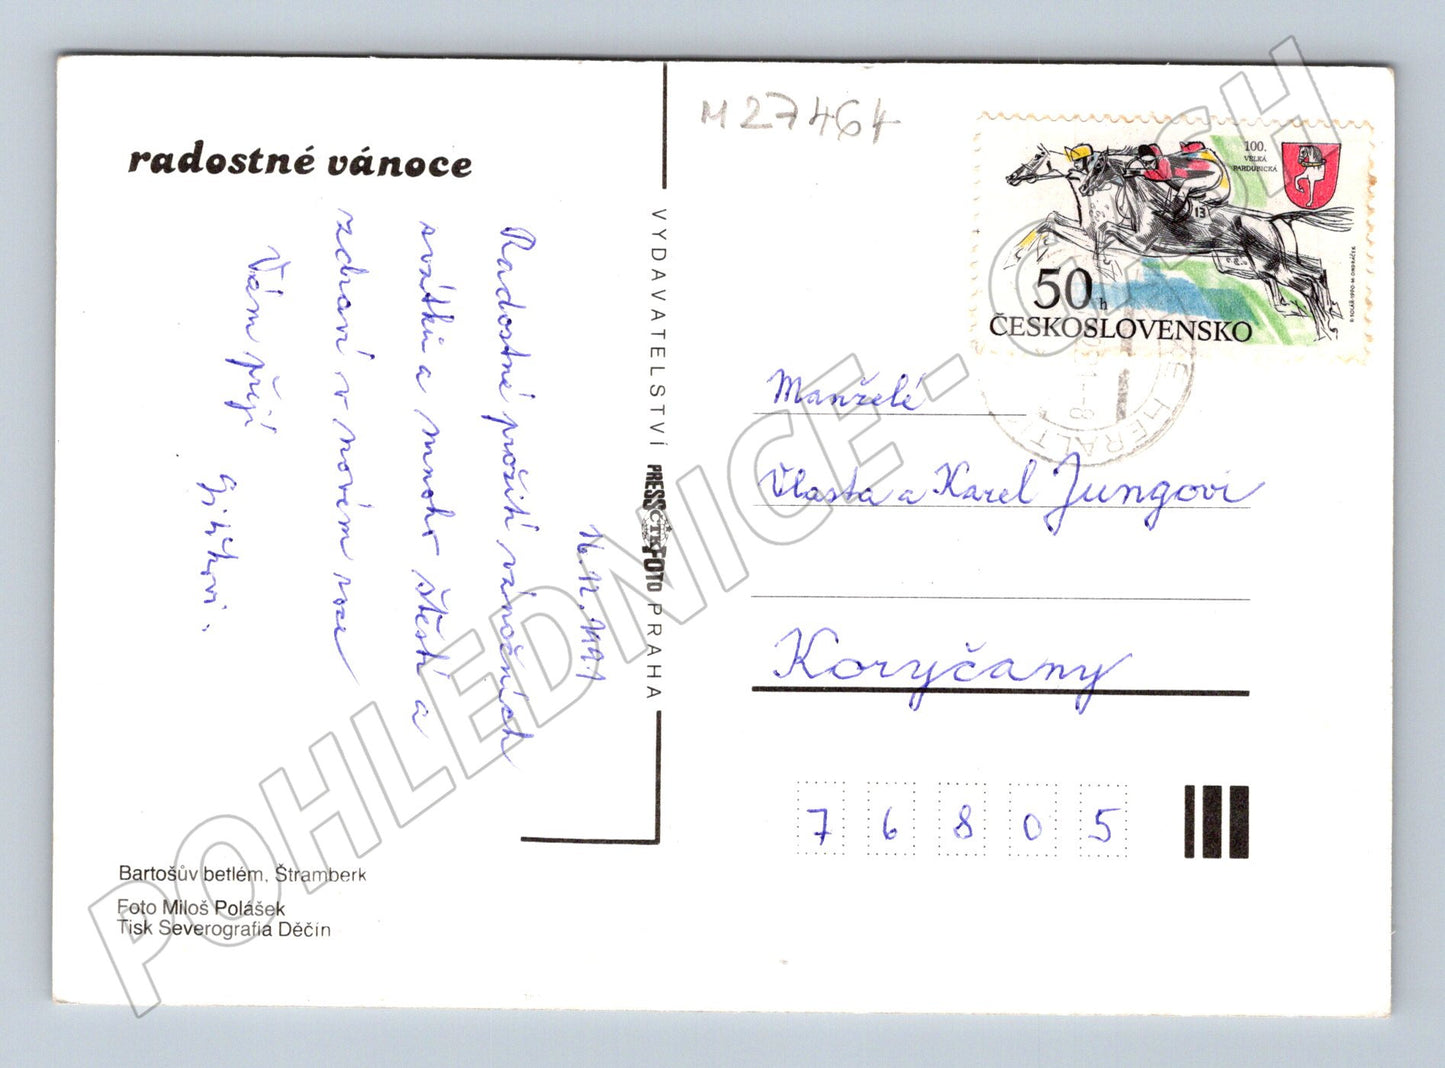 radostné vánoce
16.12.1991
Radostné prožití vánočních
svátků a mnoho štěstí a
zdraví v novém roce
Vám přejí
Bartošův betlém, Štramberk
Foto Miloš Polášek
Tisk Severografia Děčín
VYDAVATELSTVÍ PRESSFOTO PRAHA
ČTK
M27464
100.
VELKÁ
PARDUBICKÁ
13
50 h
ČESKOSLOVENSKO
Manželé
Vlasta a Karel Jungovi
Koryčany
76805
POHLEDNICE - CASH